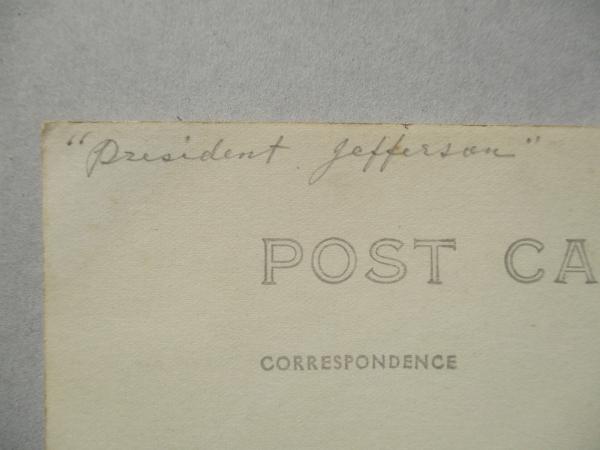 "President Jefferson"
POST CA
CORRESPONDENCE